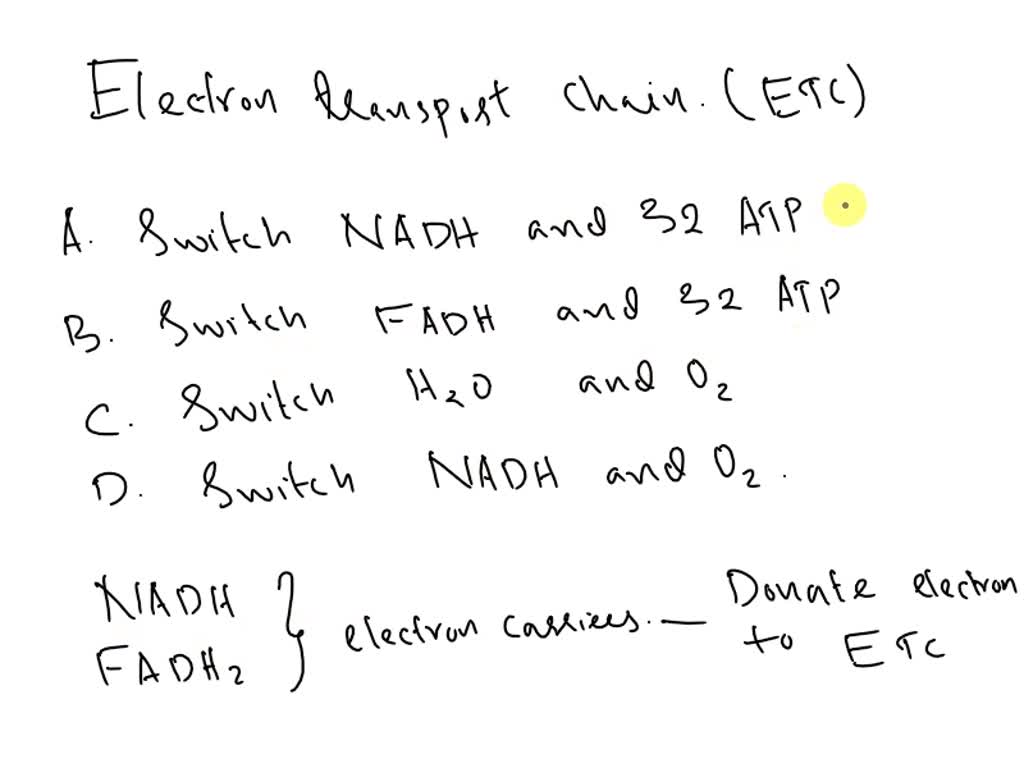 Electron transport chain. (ETC)
A. Switch NADH and 32 ATP
B. Switch FADH and 32 ATP
C. Switch H₂O and O₂
D. Switch NADH and O₂.
NADH
FADH₂ } electron carriers. — Donate electron to ETC